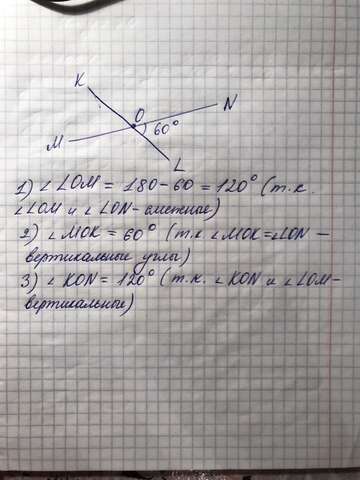 K
O
N
60°
M
L
1) ∠LOM = 180-60 = 120° (т.к.
∠LOM и ∠LON - смежные)
2) ∠MOK = 60° (т.к ∠MOK=∠LON -
вертикальные углы)
3) ∠KON = 120° (т.к. ∠KON и ∠LOM-
вертикальные)